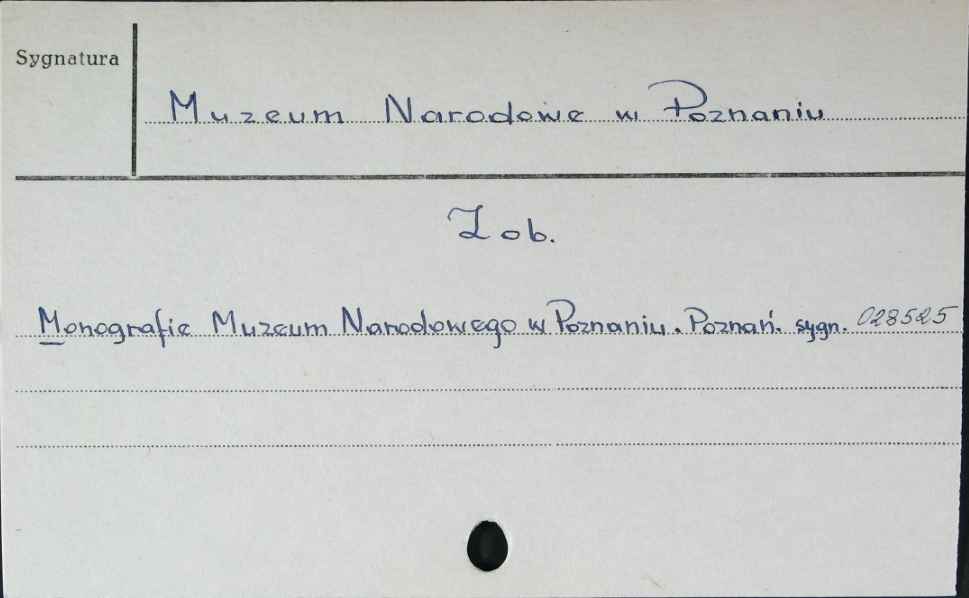 Sygnatura
Muzeum Narodowe w Poznaniu
Zob.
Monografie Muzeum Narodowego w Poznaniu. Poznań. sygn. 028525